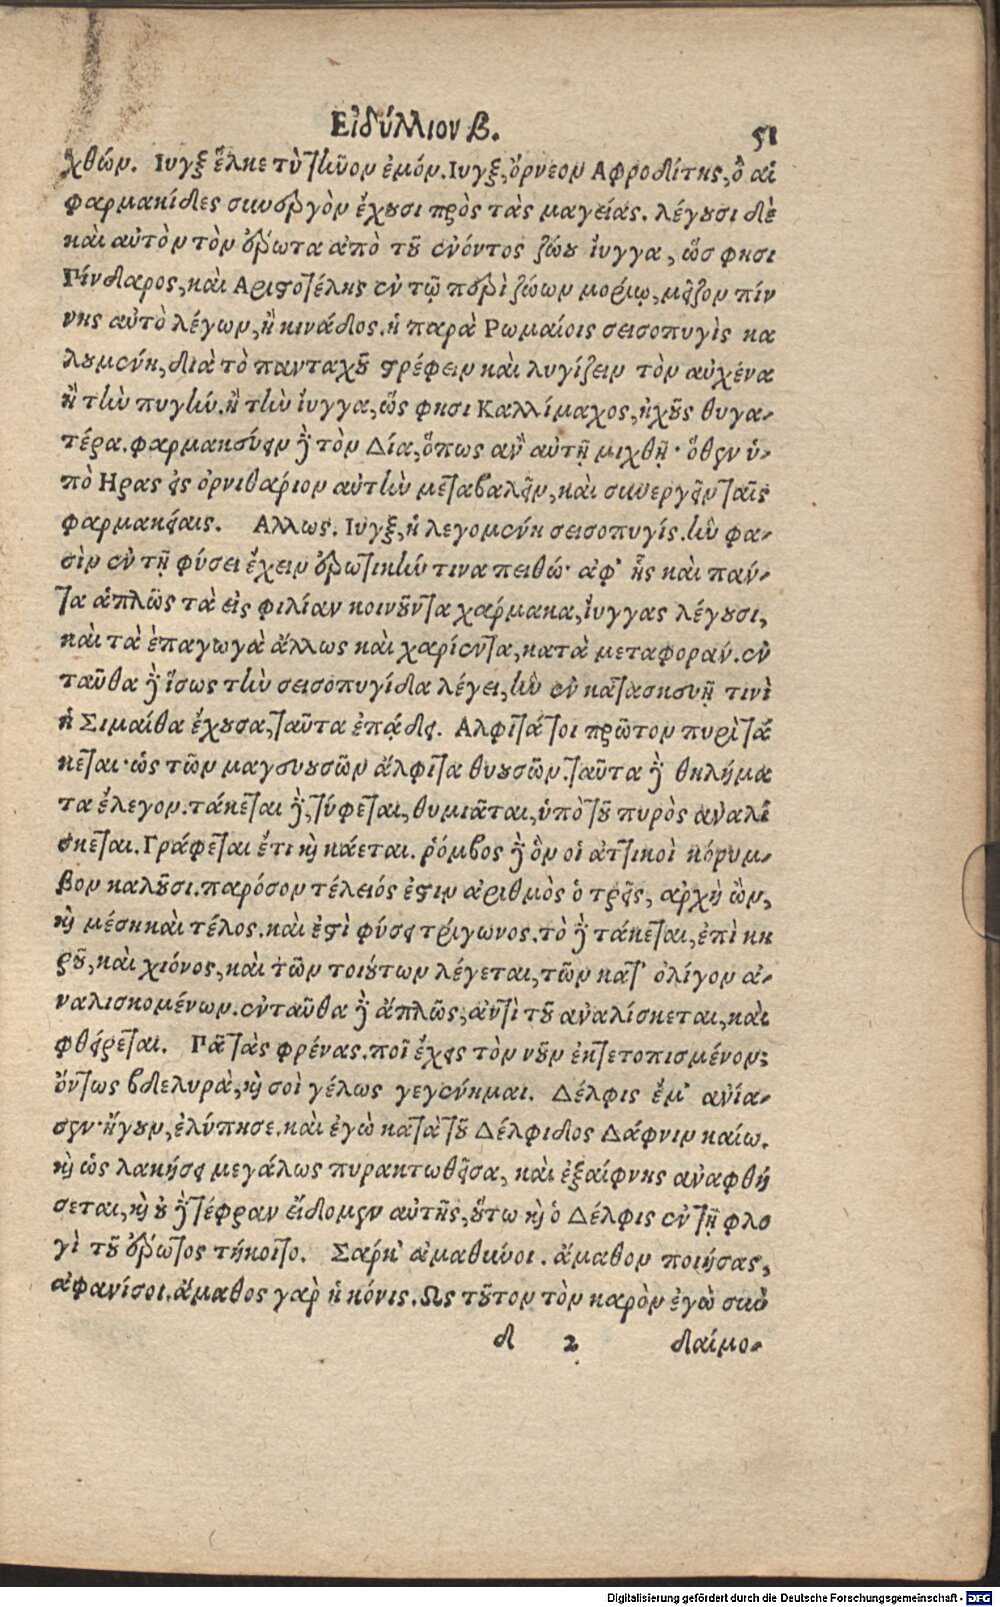 Εἰδύλλιον β. 51
χθών. Ιυγξ ἕλκε τὺ τῆνον ἐμόν. Ιυγξ, ὄρνεον Αφροδίτης, ὃ αἱ
φαρμακίδες συνεργὸν ἔχουσι πρὸς τὰς μαγείας. λέγουσι δὲ
καὶ αὐτὸν τὸν ἔρωτα ἀπὸ τοῦ ἐνόντος ζώου ἴυγγα, ὥσ φησι
Πίνδαρος, καὶ Αριστοτέλης ἐν τῷ περὶ ζώων μορίῳ, μεῖζον πίν
νης αὐτὸ λέγων, ἢ κινάδος. ἡ παρὰ Ρωμαίοις σεισοπυγὶς κα
λουμένη, διὰ τὸ πανταχοῦ στρέφειν καὶ λυγίζειν τὸν αὐχένα
ἢ τὴν πυγήν. ἢ τὴν ἴυγγα, ὥς φησι Καλλίμαχος, ἠχοῦς θυγα-
τέρα. φαρμακεύειν δὲ τὸν Δία, ὅπως ἂν αὐτῇ μιχθῇ· ὅθεν ὑ-
πὸ Ηρας εἰς ὀρνιθάριον αὐτὴν μεταβαλεῖν, καὶ συνεργεῖν ταῖς
φαρμακείαις. Αλλως. Ιυγξ, ἡ λεγομένη σεισοπυγίς. ἣν φα-
σὶν ἐν τῇ φύσει ἔχειν ἐρωτικήν τινα πειθώ· ἀφ' ἧς καὶ πάν-
τα ἁπλῶς τὰ εἰς φιλίαν κοινοῦντα χάρμακα, ἴυγγας λέγουσι,
καὶ τὰ ἐπαγωγὰ ἄλλως καὶ χαρίεντα, κατὰ μεταφοράν. ἐν
ταῦθα δὲ ἴσως τὴν σεισοπυγίδα λέγει, ἣν ἐν κατασκευῇ τινὶ
ἡ Σιμαίθα ἔχουσα, ταῦτα ἐπᾴδει. Αλφιτά τοι πρῶτον πυρὶ τά
κεται· ὡς τῶν μαγευουσῶν ἄλφιτα θυουσῶν. ταῦτα δὲ θηλήμα
τα ἔλεγον. τάκεται δὲ, τύφεται, θυμιᾶται, ὑπὸ τοῦ πυρὸς ἀναλί
σκεται. Γράφεται ἔτι καὶ κάεται. ῥόμβος δὲ ὃν οἱ ἀττικοὶ κόρυμ-
βον καλοῦσι. παρόσον τέλειός ἐστιν ἀριθμὸς ὁ τρεῖς, ἀρχὴ ὢν,
καὶ μέση καὶ τέλος. καὶ ἐστὶ φύσει τρίγωνος. τὸ δὲ τάκεται, ἐπὶ κη
ροῦ, καὶ χιόνος, καὶ τῶν τοιούτων λέγεται, τῶν κατ' ὀλίγον ἀ-
ναλισκομένων. ἐνταῦθα δὲ ἁπλῶς, ἀντὶ τοῦ ἀναλίσκεται, καὶ
φθείρεται. Γᾶ τὰς φρένας. ποῖ ἔχεις τὸν νοῦν ἐκτετοπισμένον;
ὄντως βδελυρὰ, καὶ σοὶ γέλως γεγένημαι. Δέλφις ἔμ' ἀνία-
σεν· ἤγουν, ἐλύπησε. καὶ ἐγὼ κατὰ τοῦ Δέλφιδος Δάφνιν καίω.
καὶ ὡς λακήσει μεγάλως πυρακτωθεῖσα, καὶ ἐξαίφνης ἀναφθή
σεται, καὶ οὐ δὲ τέφραν εἴδομεν αὐτῆς, οὕτω καὶ ὁ Δέλφις ἐν τῇ φλο
γὶ τοῦ ἔρωτος τήκοιτο. Σάρκ' ἀμαθύνοι. ἄμαθον ποιήσας,
ἀφανίσοι. ἄμαθος γὰρ ἡ κόνις. Ως τοῦτον τὸν καρὸν ἐγὼ σὺν
d 2 δαίμο-
Digitalisierung gefördert durch die Deutsche Forschungsgemeinschaft - DFG